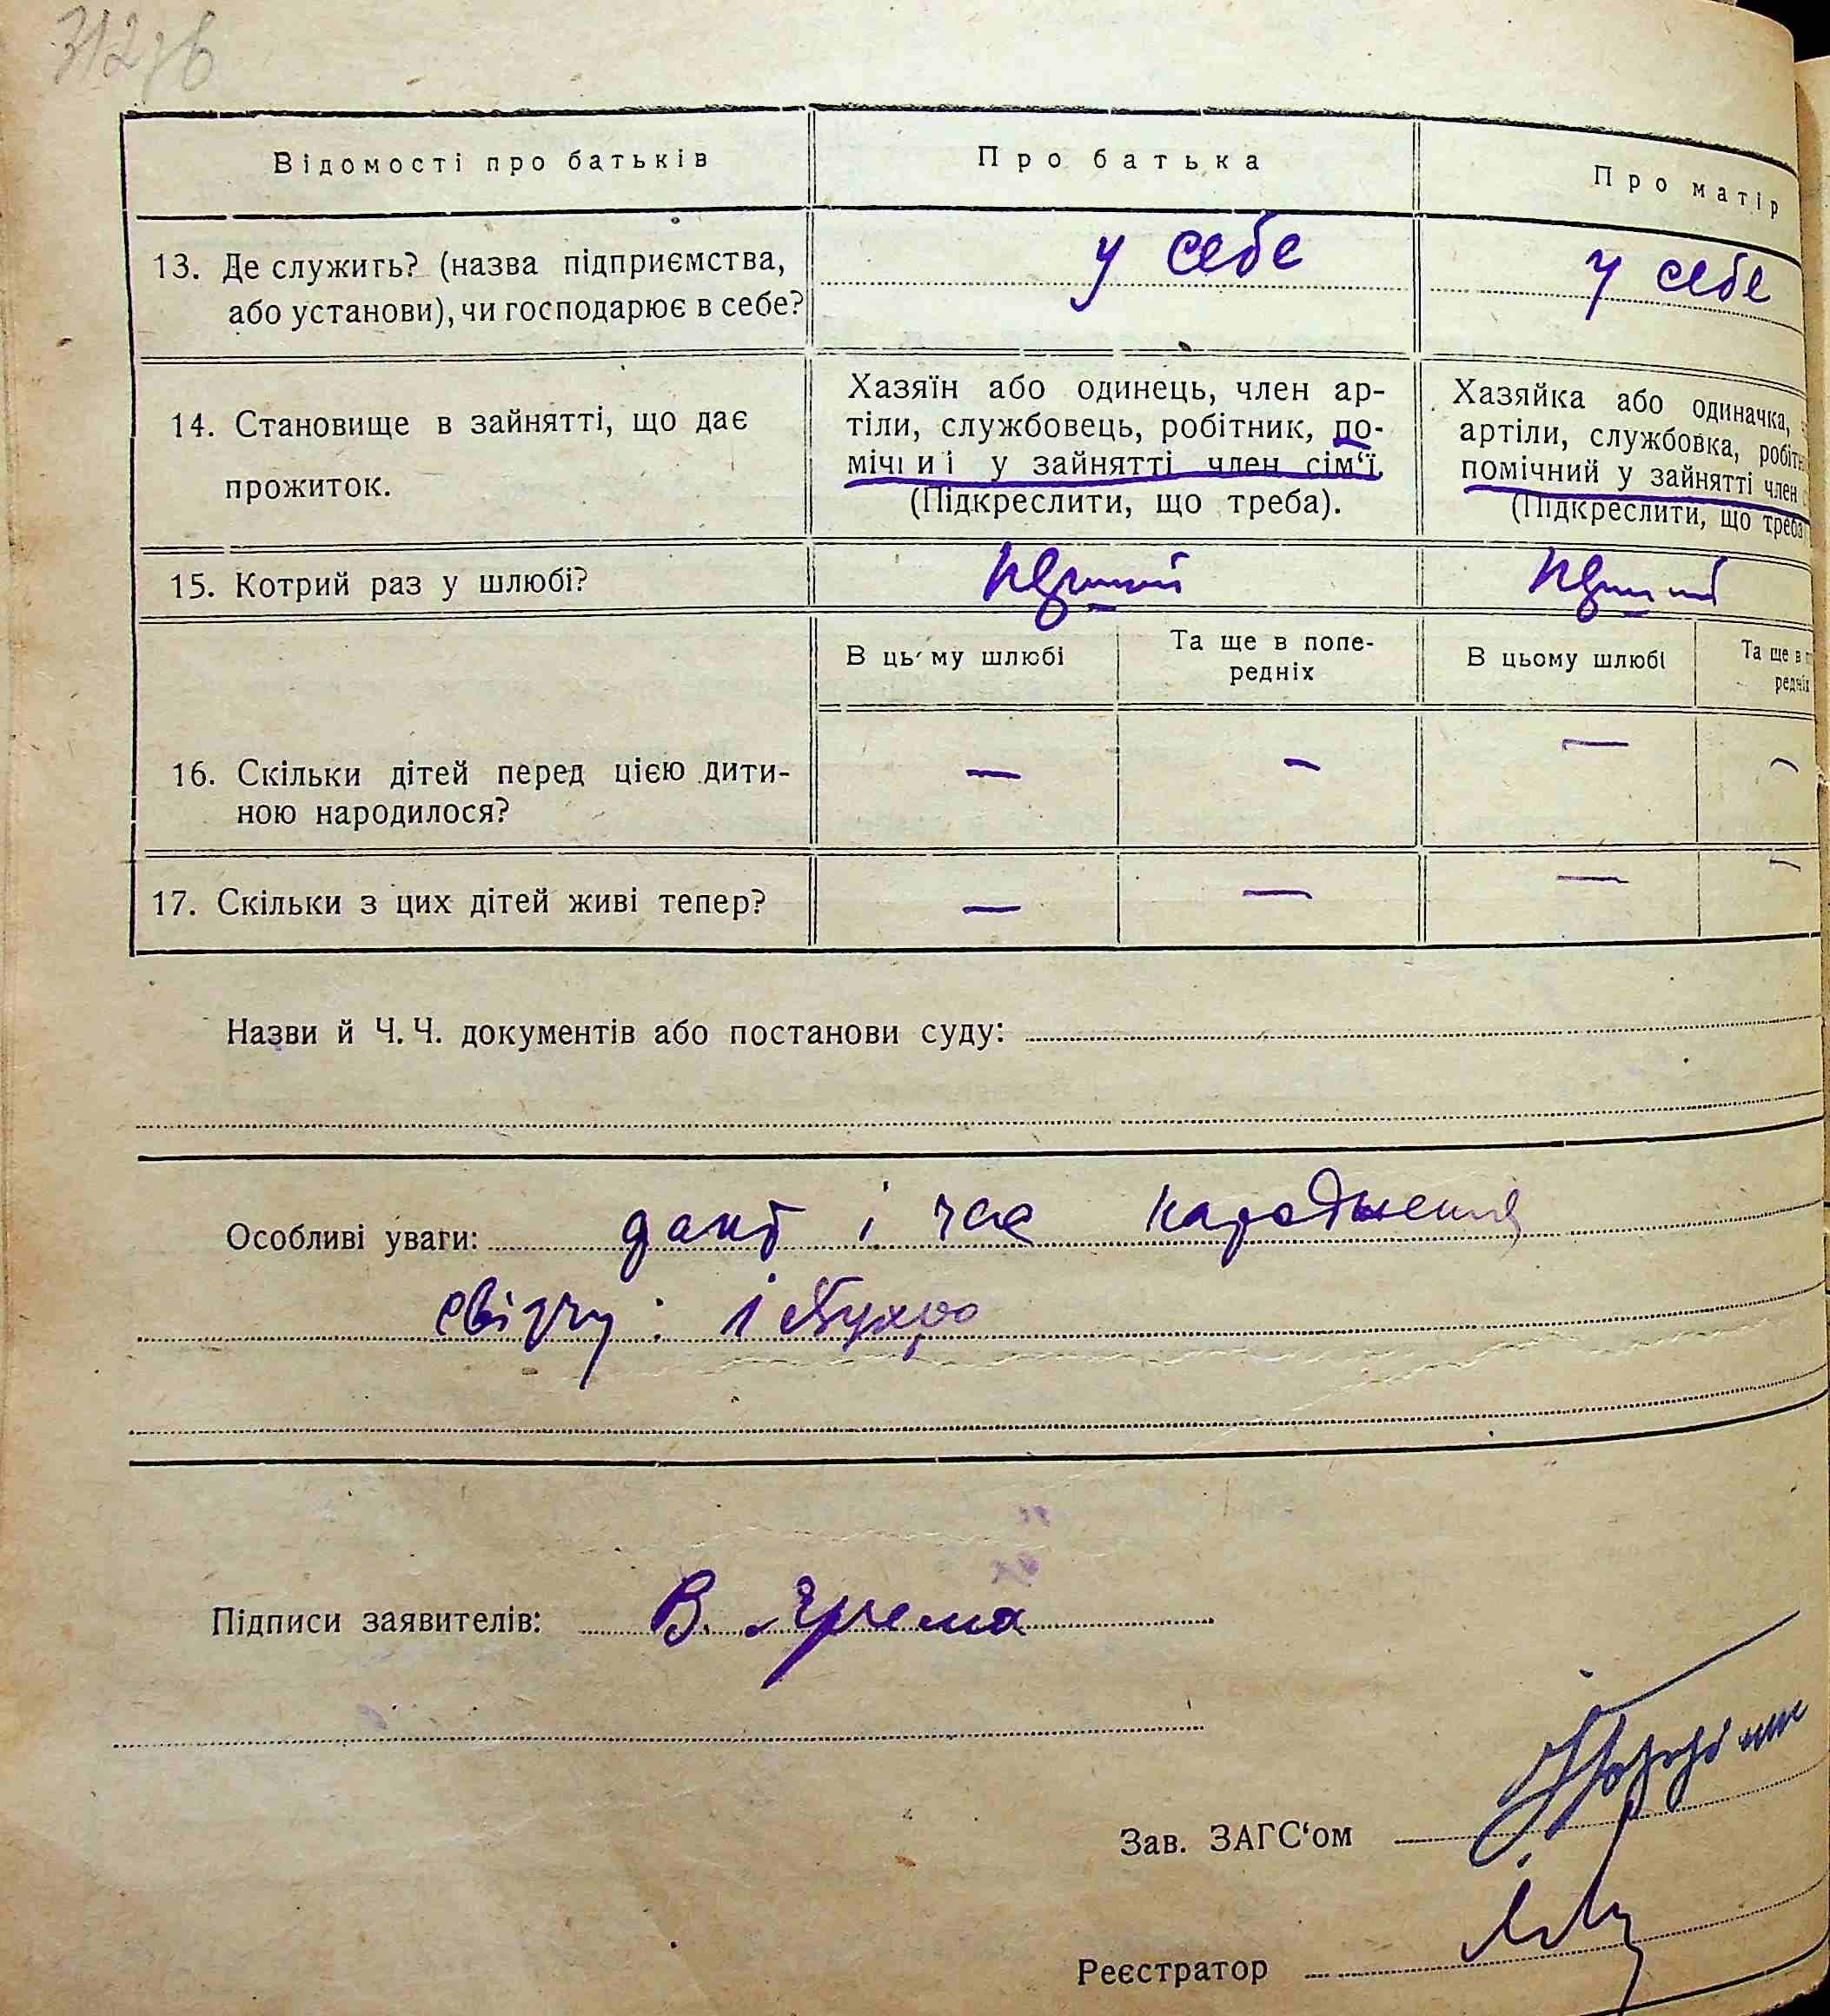 312 зв
Відомості про батьків
Про батька
Про матір
13. Де служить? (назва підприємства,
або установи), чи господарює в себе?
у себе
у себе
14. Становище в зайнятті, що дає
прожиток.
Хазяїн або одинець, член ар-
тіли, службовець, робітник, по-
мічний у зайнятті член сім‘ї
(Підкреслити, що треба).
Хазяйка або одиначка,
артіли, службовка, робітн
помічний у зайнятті член
(Підкреслити, що треба
15. Котрий раз у шлюбі?
перший
перший
В цьому шлюбі
Та ще в попе-
редніх
В цьому шлюбі
Та ще в п
редніх
16. Скільки дітей перед цією дити-
ною народилося?
— — — —
17. Скільки з цих дітей живі тепер?
— — — —
Назви й Ч. Ч. документів або постанови суду:
Особливі уваги: факт і час народження
свідчу:
Підписи заявителів: В.
Зав. ЗАГС‘ом
Реєстратор